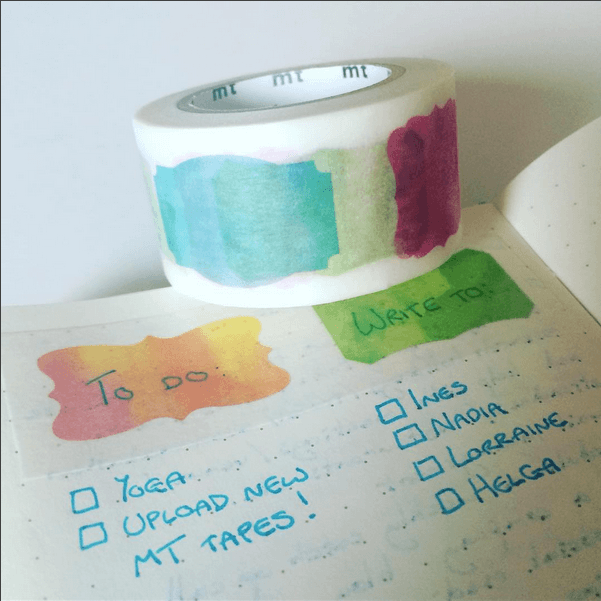 mt mt mt
To do:
YOGA
UPLOAD NEW
MT TAPES!
WRITE TO:
INES
NADIA
LORRAINE
HELGA